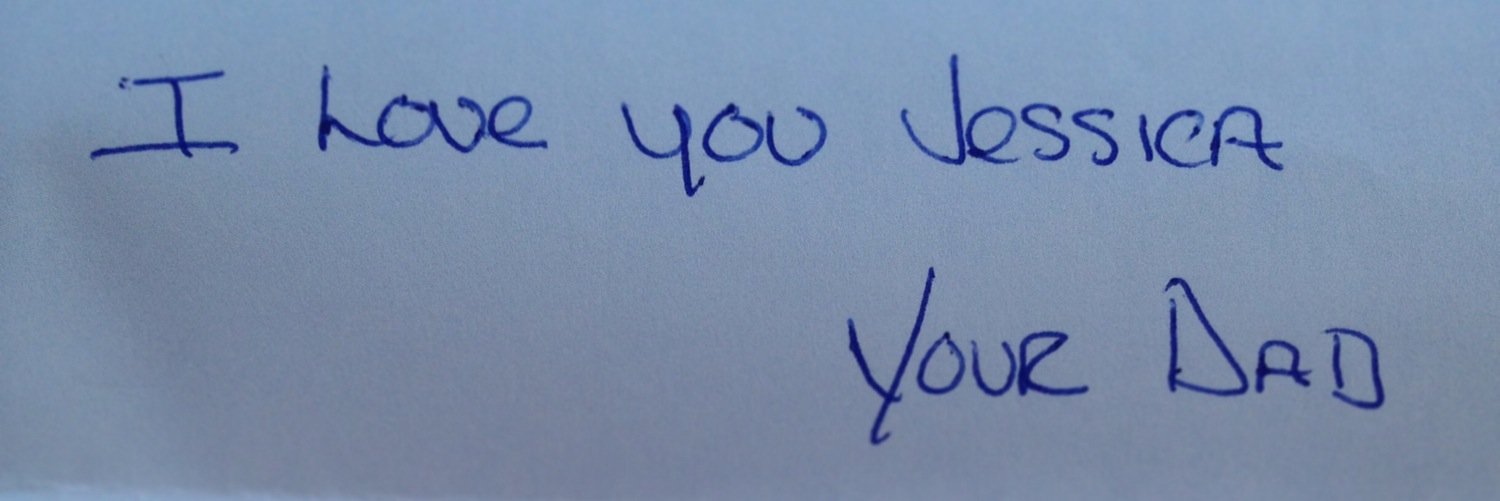 I Love you Jessica
Your Dad